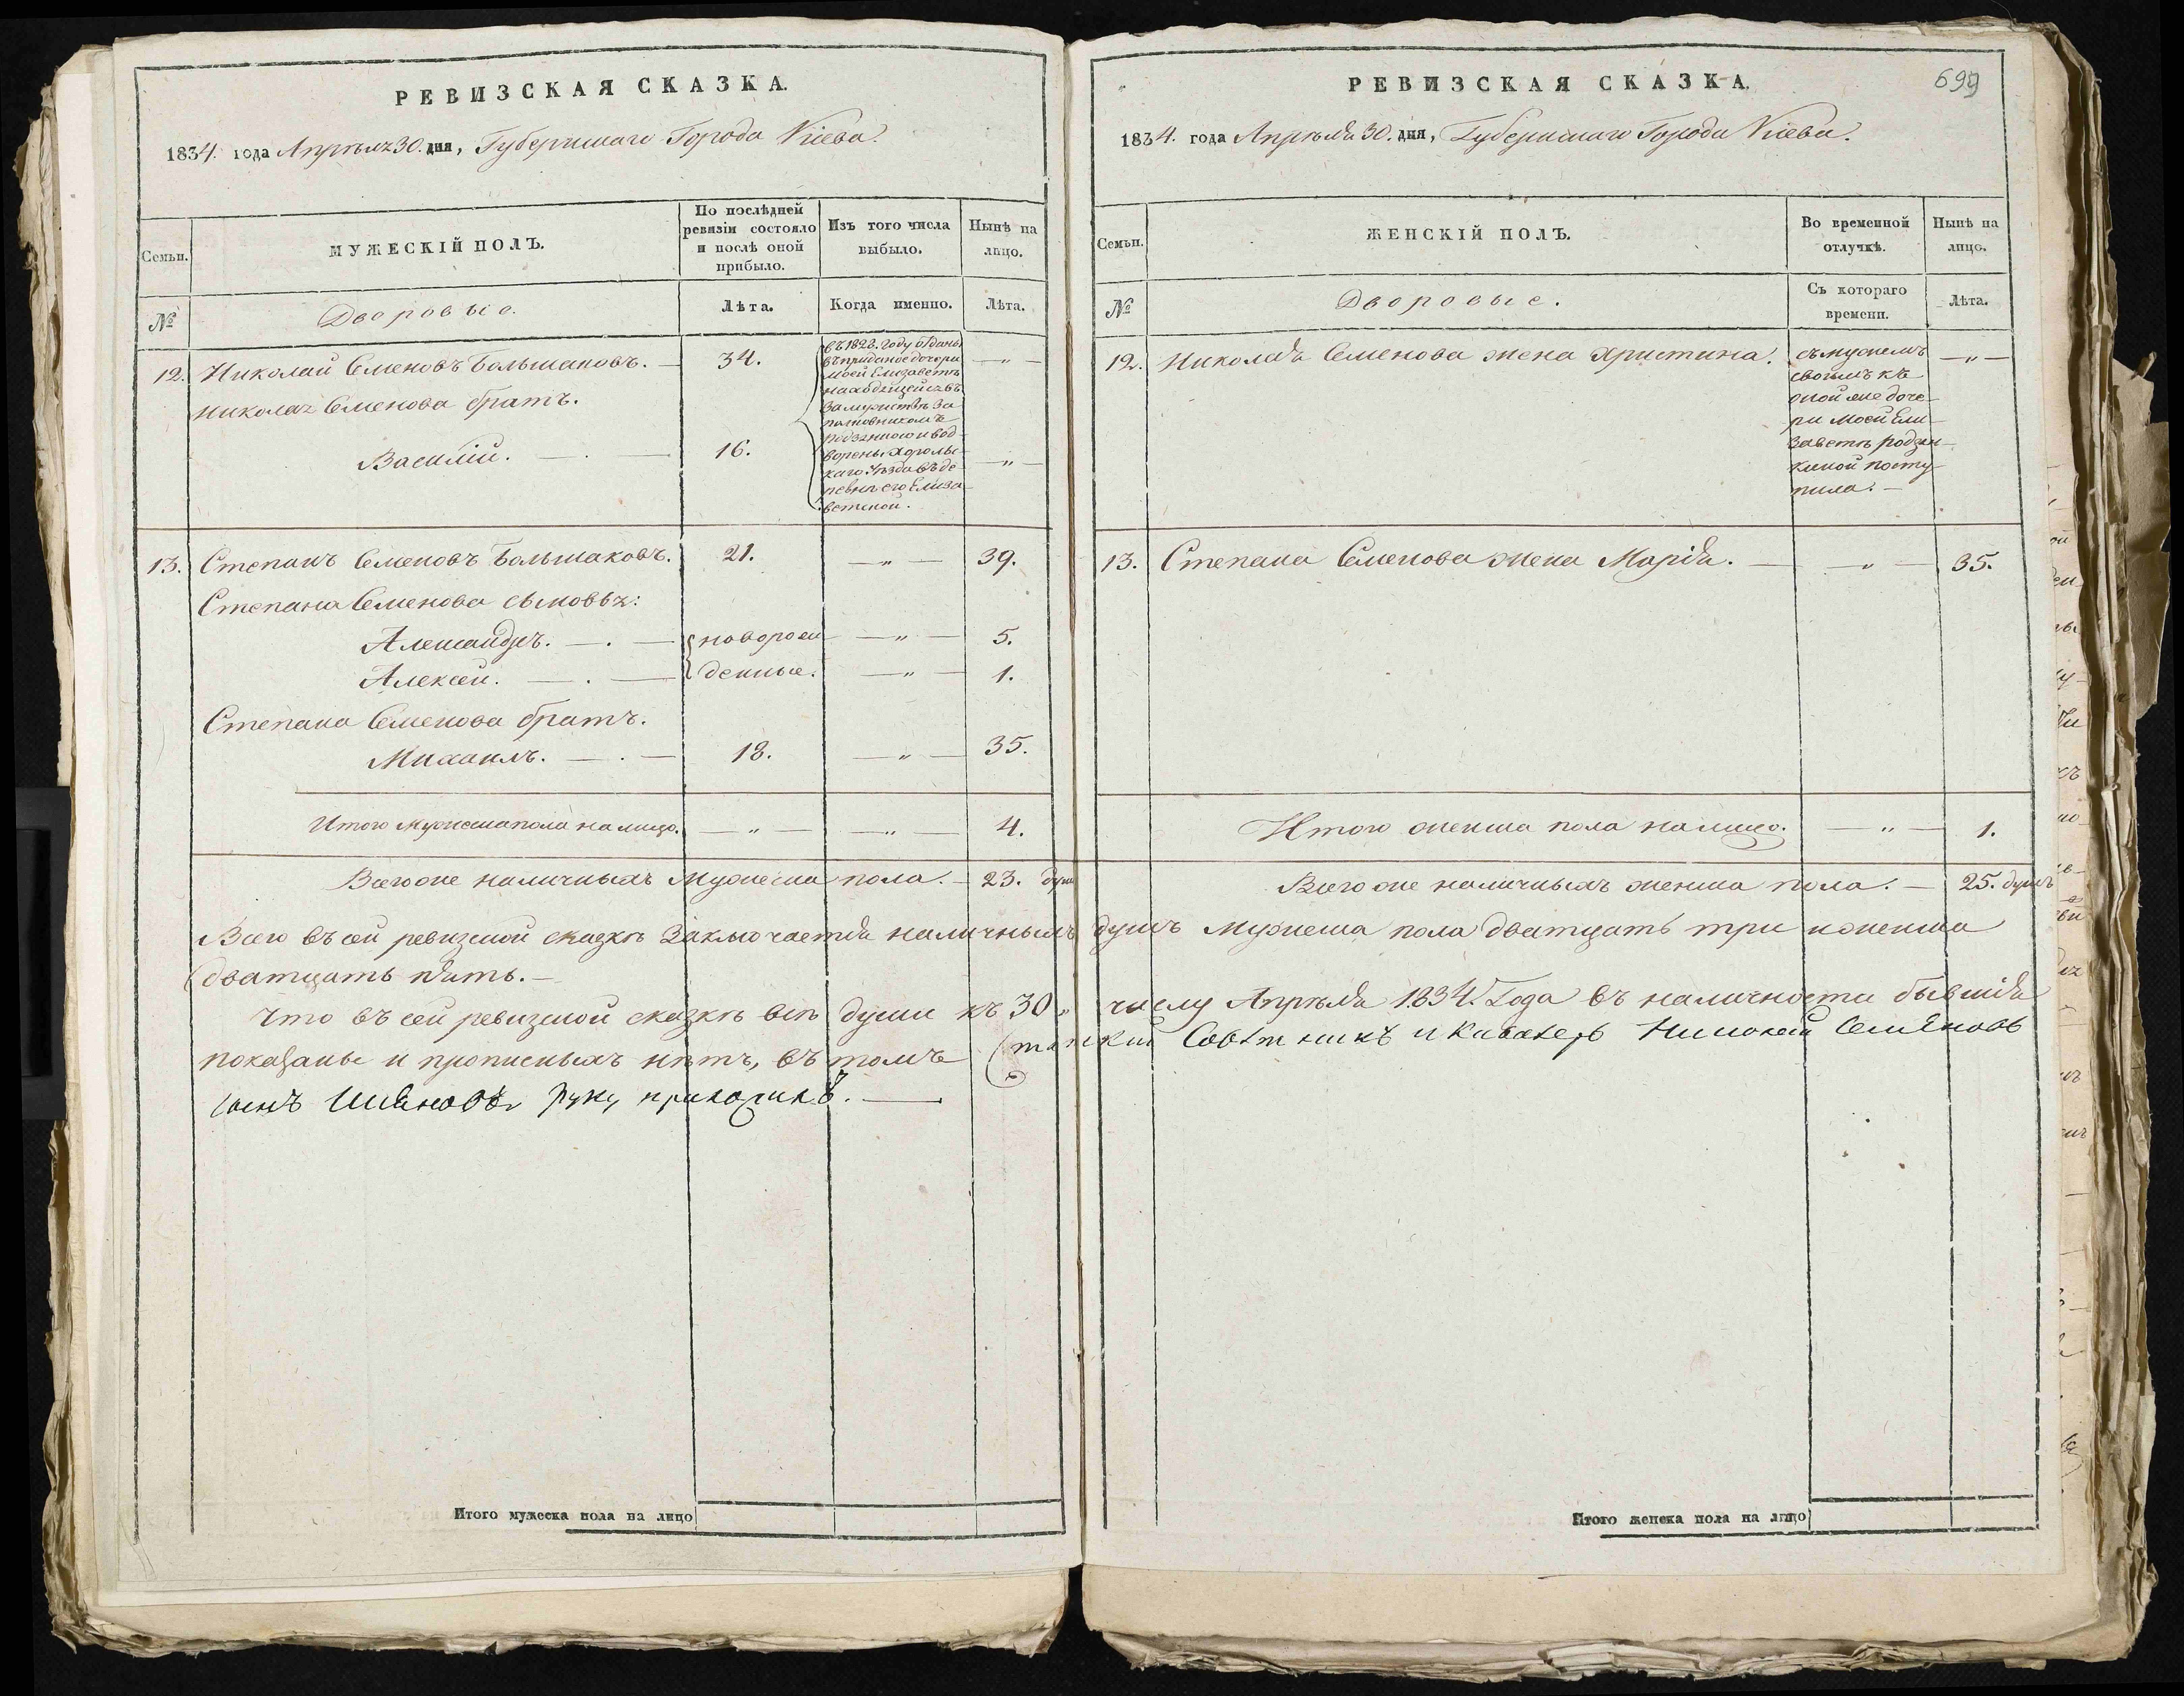 РЕВИЗСКАЯ СКАЗКА.
1834. года Апрѣля 30. дня, Губернскаго Города Кіева.
Семьи.
МУЖЕСКІЙ ПОЛЪ.
По послѣдней
ревизіи состояло
и послѣ оной
прибыло.
Изъ того числа
выбыло.
Нынѣ на
лицо.
№
Дворовые.
Лѣта.
Когда именно.
Лѣта.
12. Николай Семеновъ Большаковъ. — 34. — „ —
Николая Семенова братъ.
Василій. — . — 16. — „ —
въ 1828. году отданы
въ приданое дочери
моей Елизаветѣ
находящейся въ
замужствѣ за
полковникомъ
Родзянкою и вод-
ворены Хорольс-
каго Уѣзда въ де-
ревнѣ его Елиза-
ветиной.
13. Степанъ Семеновъ Большаковъ. 21. — „ — 39.
Степана Семенова сыновья:
Александръ. — . — новорож- — „ — 5.
Алексей. — . — денные. — „ — 1.
Степана Семенова братъ.
Михаилъ. — . — 18. — „ — 35.
Итого мужеска пола на лицо. — „ — — „ — 4.
Всего же наличныхъ мужеска пола. — 23. душ
РЕВИЗСКАЯ СКАЗКА.
699
1834. года Апрѣля 30. дня, Губернскаго Города Кіева.
Семьи.
ЖЕНСКІЙ ПОЛЪ.
Во временной
отлучкѣ.
Нынѣ на
лицо.
№
Дворовые.
Съ котораго
времени.
Лѣта.
12. Николая Семенова жена Христина. — „ —
съ мужемъ
своимъ къ
оной же доче-
ри моей Ели-
заветѣ Родзян-
киной посту-
пила. —
13. Степана Семенова жена Марія. — — „ — 35.
Итого женска пола на лицо. — „ — 1.
Всего же наличныхъ женска пола. — 25. душъ
Всего въ сей ревизской сказкѣ заключается наличныхъ душъ мужеска пола дватцать три и женска
дватцать пять. —
Что въ сей ревизской сказкѣ всѣ души къ 30„ числу Апрѣля 1834. Года въ наличности бывшія
показаны и прописныхъ нѣтъ, въ томъ статскій Совѣтникъ и Кавалеръ Николай Семеновъ
сынъ руку приложилъ. —
Итого мужеска пола на лицо
Итого женска пола на лицо